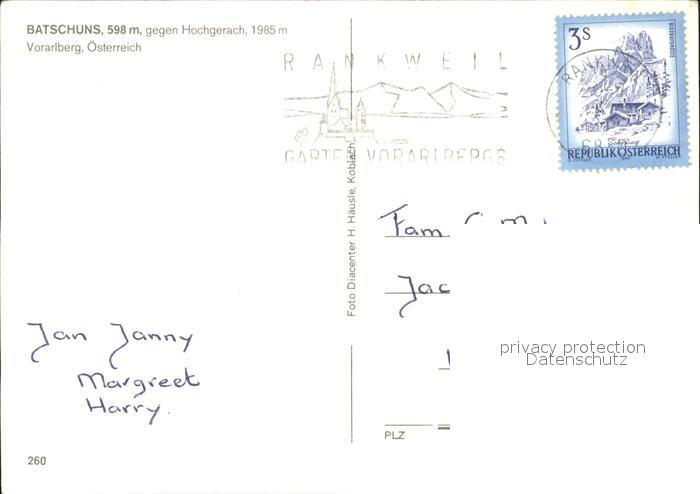 BATSCHUNS, 598 m, gegen Hochgerach, 1985 m
Vorarlberg, Österreich
RANKWEIL
GARTEN VORARLBERGS
3 S
REPUBLIK ÖSTERREICH
RANKW
Foto Diacenter H. Häusle, Koblach
Fam
Jac
Jan Janny
Margreet
Harry.
privacy protection
Datenschutz
PLZ
260